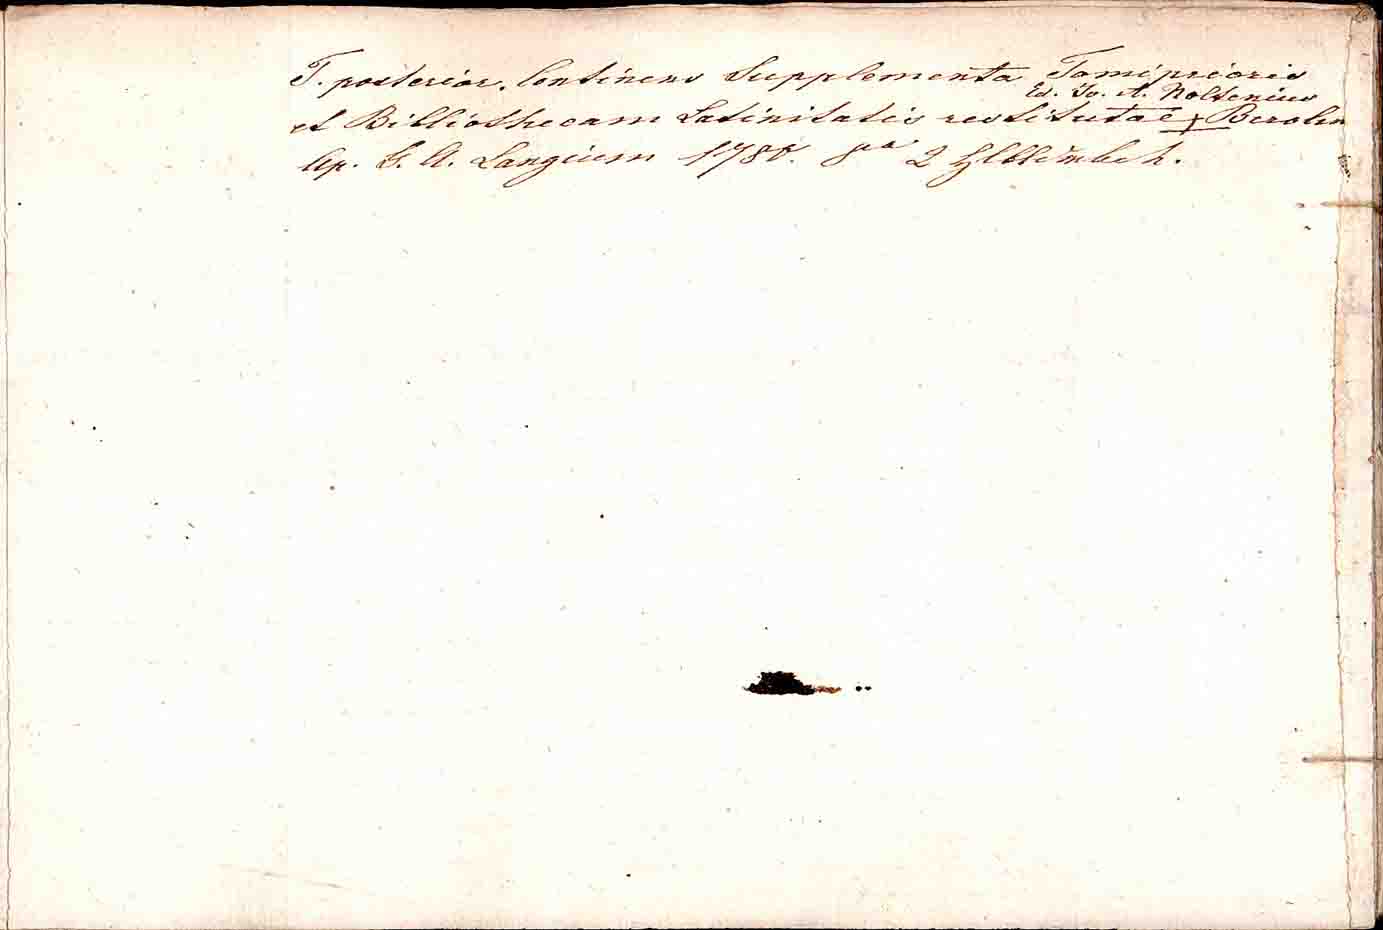 T. posterior. Continens Supplementa Tomi prioris
Ed. Io. A. Noltenius
et Bibliothecam Latinitatis restitutae Berolin
Ap. G. A. Langium 1780. 8va 2